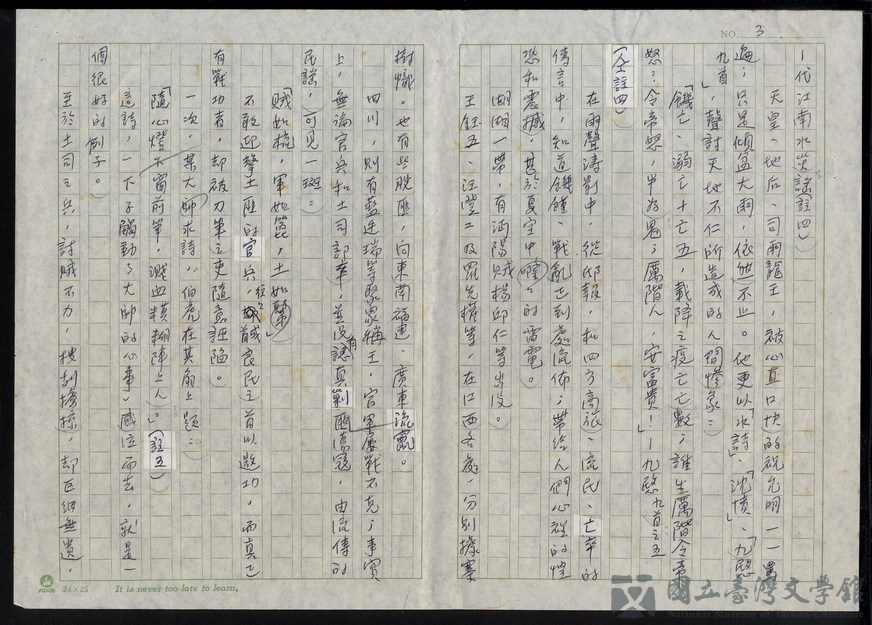 NO. 3
—代江南水災謠註四)
天皇、地后、司雨龍王,被心直口快的祝允明一一罵
遍;只是傾盆大雨,依然不止。他更以「水詩」、「沈憤」、「九愍
九首」,聲討天地不仁所造成的人間慘象:
「饑亡、溺亡十亡五,載降之疫亡亡數;誰生厲階令帝
怒?令帝怒,半為鬼;厲階人,安富貴!」—九愍九首之五
(仝註四)
在雨聲濤影中,從邸報,和四方商旅、流民、亡卒的
傳言中,知道饑饉、戰亂正到處流佈;帶給人們心理的惶
恐和震撼,甚於夏空中隆隆的雷電。
湖湘一帶,有沔陽賊楊邱仁等出沒。
王鈺五、汪澄二及羅先權等,在江西各處,分別據寨
樹幟。也有些股匪,向東南福建、廣東流竄。
四川,則有藍廷瑞等聚眾稱王,官軍屢戰不克;事實
上,無論官兵和土司部卒,並沒有認真剿匪蕩寇,由流傳的
民謠,可見一斑:
「賊如梳,軍如篦,土如鬀」
不敢迎擊土匪的官兵,往往馘良民之首以邀功,而真正
有戰功者,卻被刀筆之吏隨意誣陷。
一次,某大師求詩,伯虎在其扇上題:
「隨心燈火窗前筆,濺血模糊陣上人。」(註五)
這詩,一下子觸動了大師的心事,感泣而去,就是一
個很好的例子。
至於土司之兵,討賊不力,搜刮擄掠,卻巨細無遺,
24×25 It is never too late to learn.
國立臺灣文學館
National Museum of Taiwan Literature